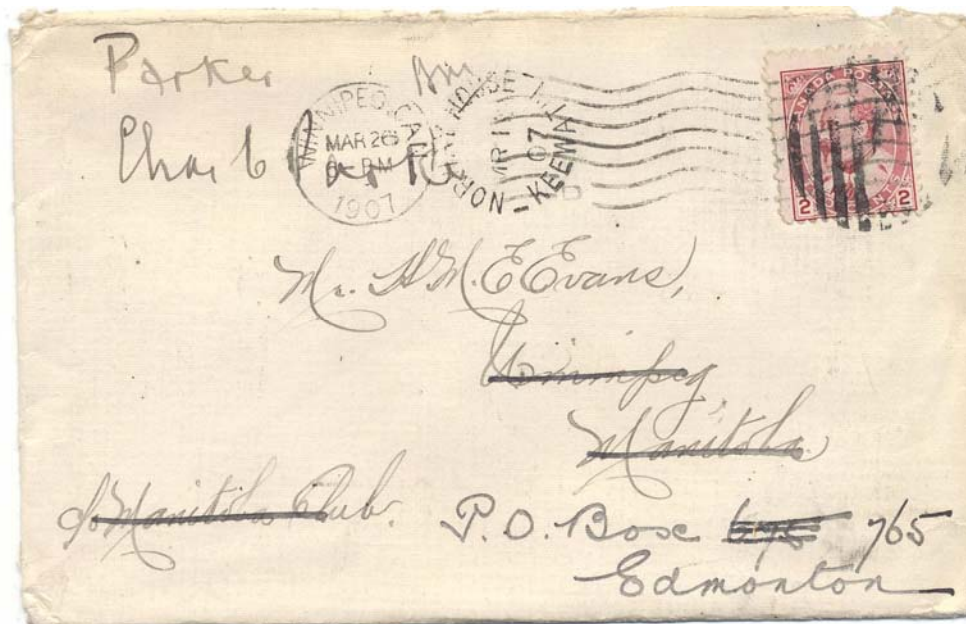 Parker
Chas
WINNIPEG, CAN.
MAR 26
PM
1907
NORWAY HOUSE
-KEEWA
07
CANADA POSTAGE
2 CENTS 2
Mr. H.M.E Evans,
Winnipeg,
Manitoba
c/o Manitoba Club.
P.O. Box 765
Edmonton